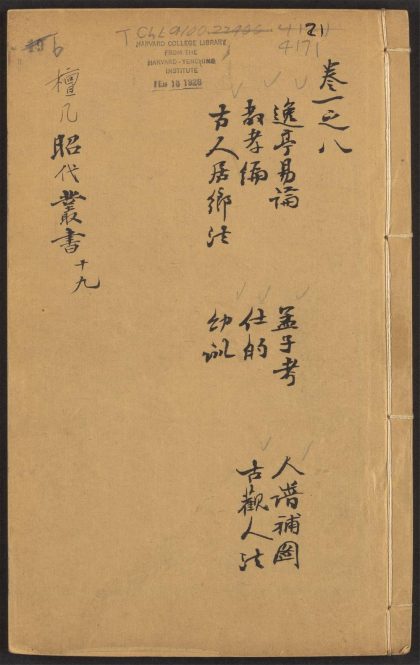 4171
HARVARD COLLEGE LIBRARY
FROM THE
HARVARD-YENCHING
INSTITUTE
卷一之八
逸亭易論 孟子考 人譜補圖
教孝編 仕的 古觀人法
古人居鄉法 幼訓
檀几昭代叢書 十九